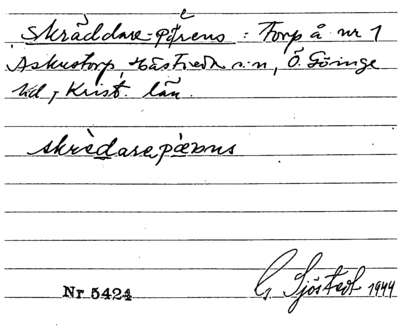 Skräddare=Pärens : Torp å nr 1
Askestorp, Hästveda s:n, Ö. Göinge
hd, Krist. län.
skrèdarepærns
Nr 5424
G. Sjöstedt 1944